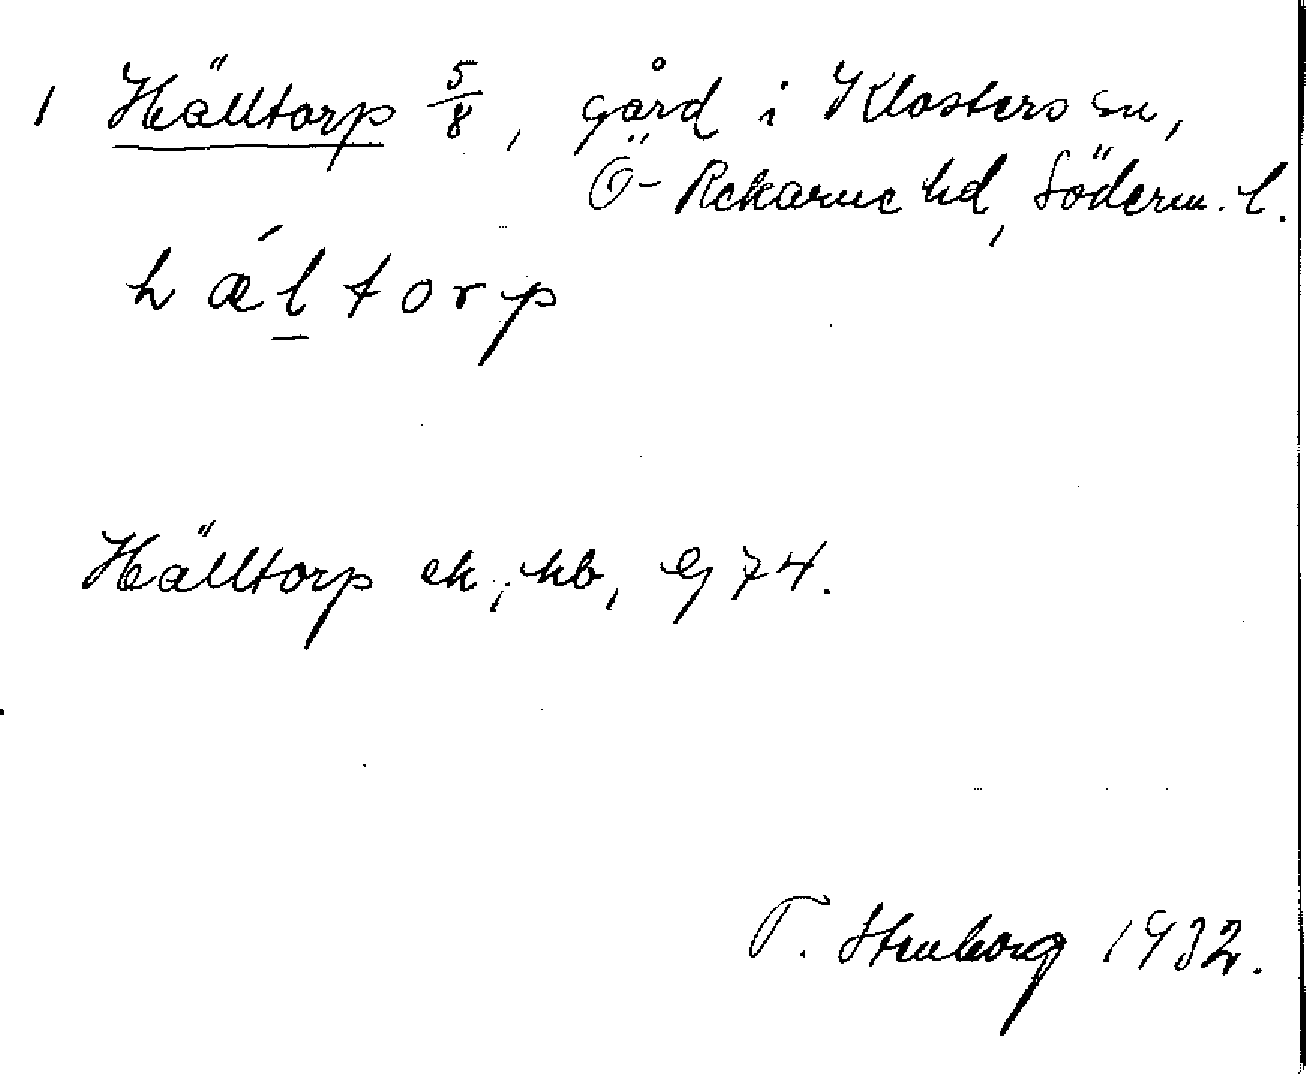 1 Hälltorp 5/8, gård i Klosters sn,
Ö-Rekarne hd, Söderm. l.
hǽl̲torp
Hälltorp ek, kb, Gj 74.
T. Stenborg 1932.